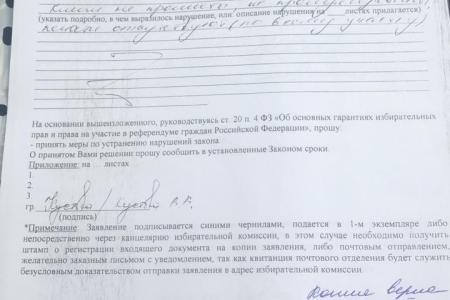 Книги не прошиты, не пронумерованы,
(указать подробно, в чем выразилось нарушение, или: описание нарушения на листах прилагается)
по всему участку
На основании вышеизложенного, руководствуясь ст. 20 п. 4 ФЗ «Об основных гарантиях избирательных
прав и права на участие в референдуме граждан Российской Федерации», прошу:
- принять меры по устранению нарушений закона.
О принятом Вами решении прошу сообщить в установленные Законом сроки.
Приложение на листах
1.
2.
3.
гр.
(подпись)
*Примечание Заявление подписывается синими чернилами, подается в 1-м экземпляре либо
непосредственно через канцелярию избирательной комиссии, в этом случае необходимо получить
штамп о регистрации входящего документа на копии заявления, либо почтовым отправлением,
желательно заказным письмом с уведомлением, так как квитанция почтового отделения будет служить
безусловным доказательством отправки заявления в адрес избирательной комиссии.
Копия верна